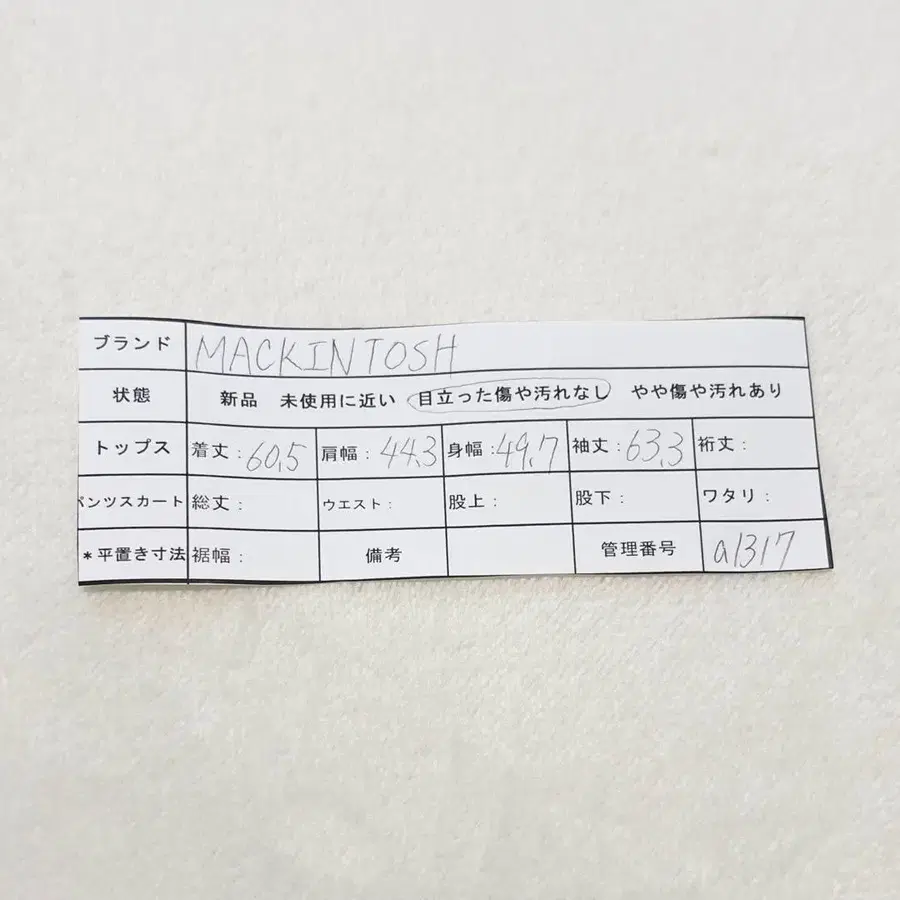 ブランド MACKINTOSH
状態 新品 未使用に近い 目立った傷や汚れなし やや傷や汚れあり
トップス 着丈:60.5 肩幅:44.3 身幅:49.7 袖丈:63.3 裄丈:
パンツスカート 総丈: ウエスト: 股上: 股下: ワタリ:
*平置き寸法 裾幅: 備考 管理番号 a1317